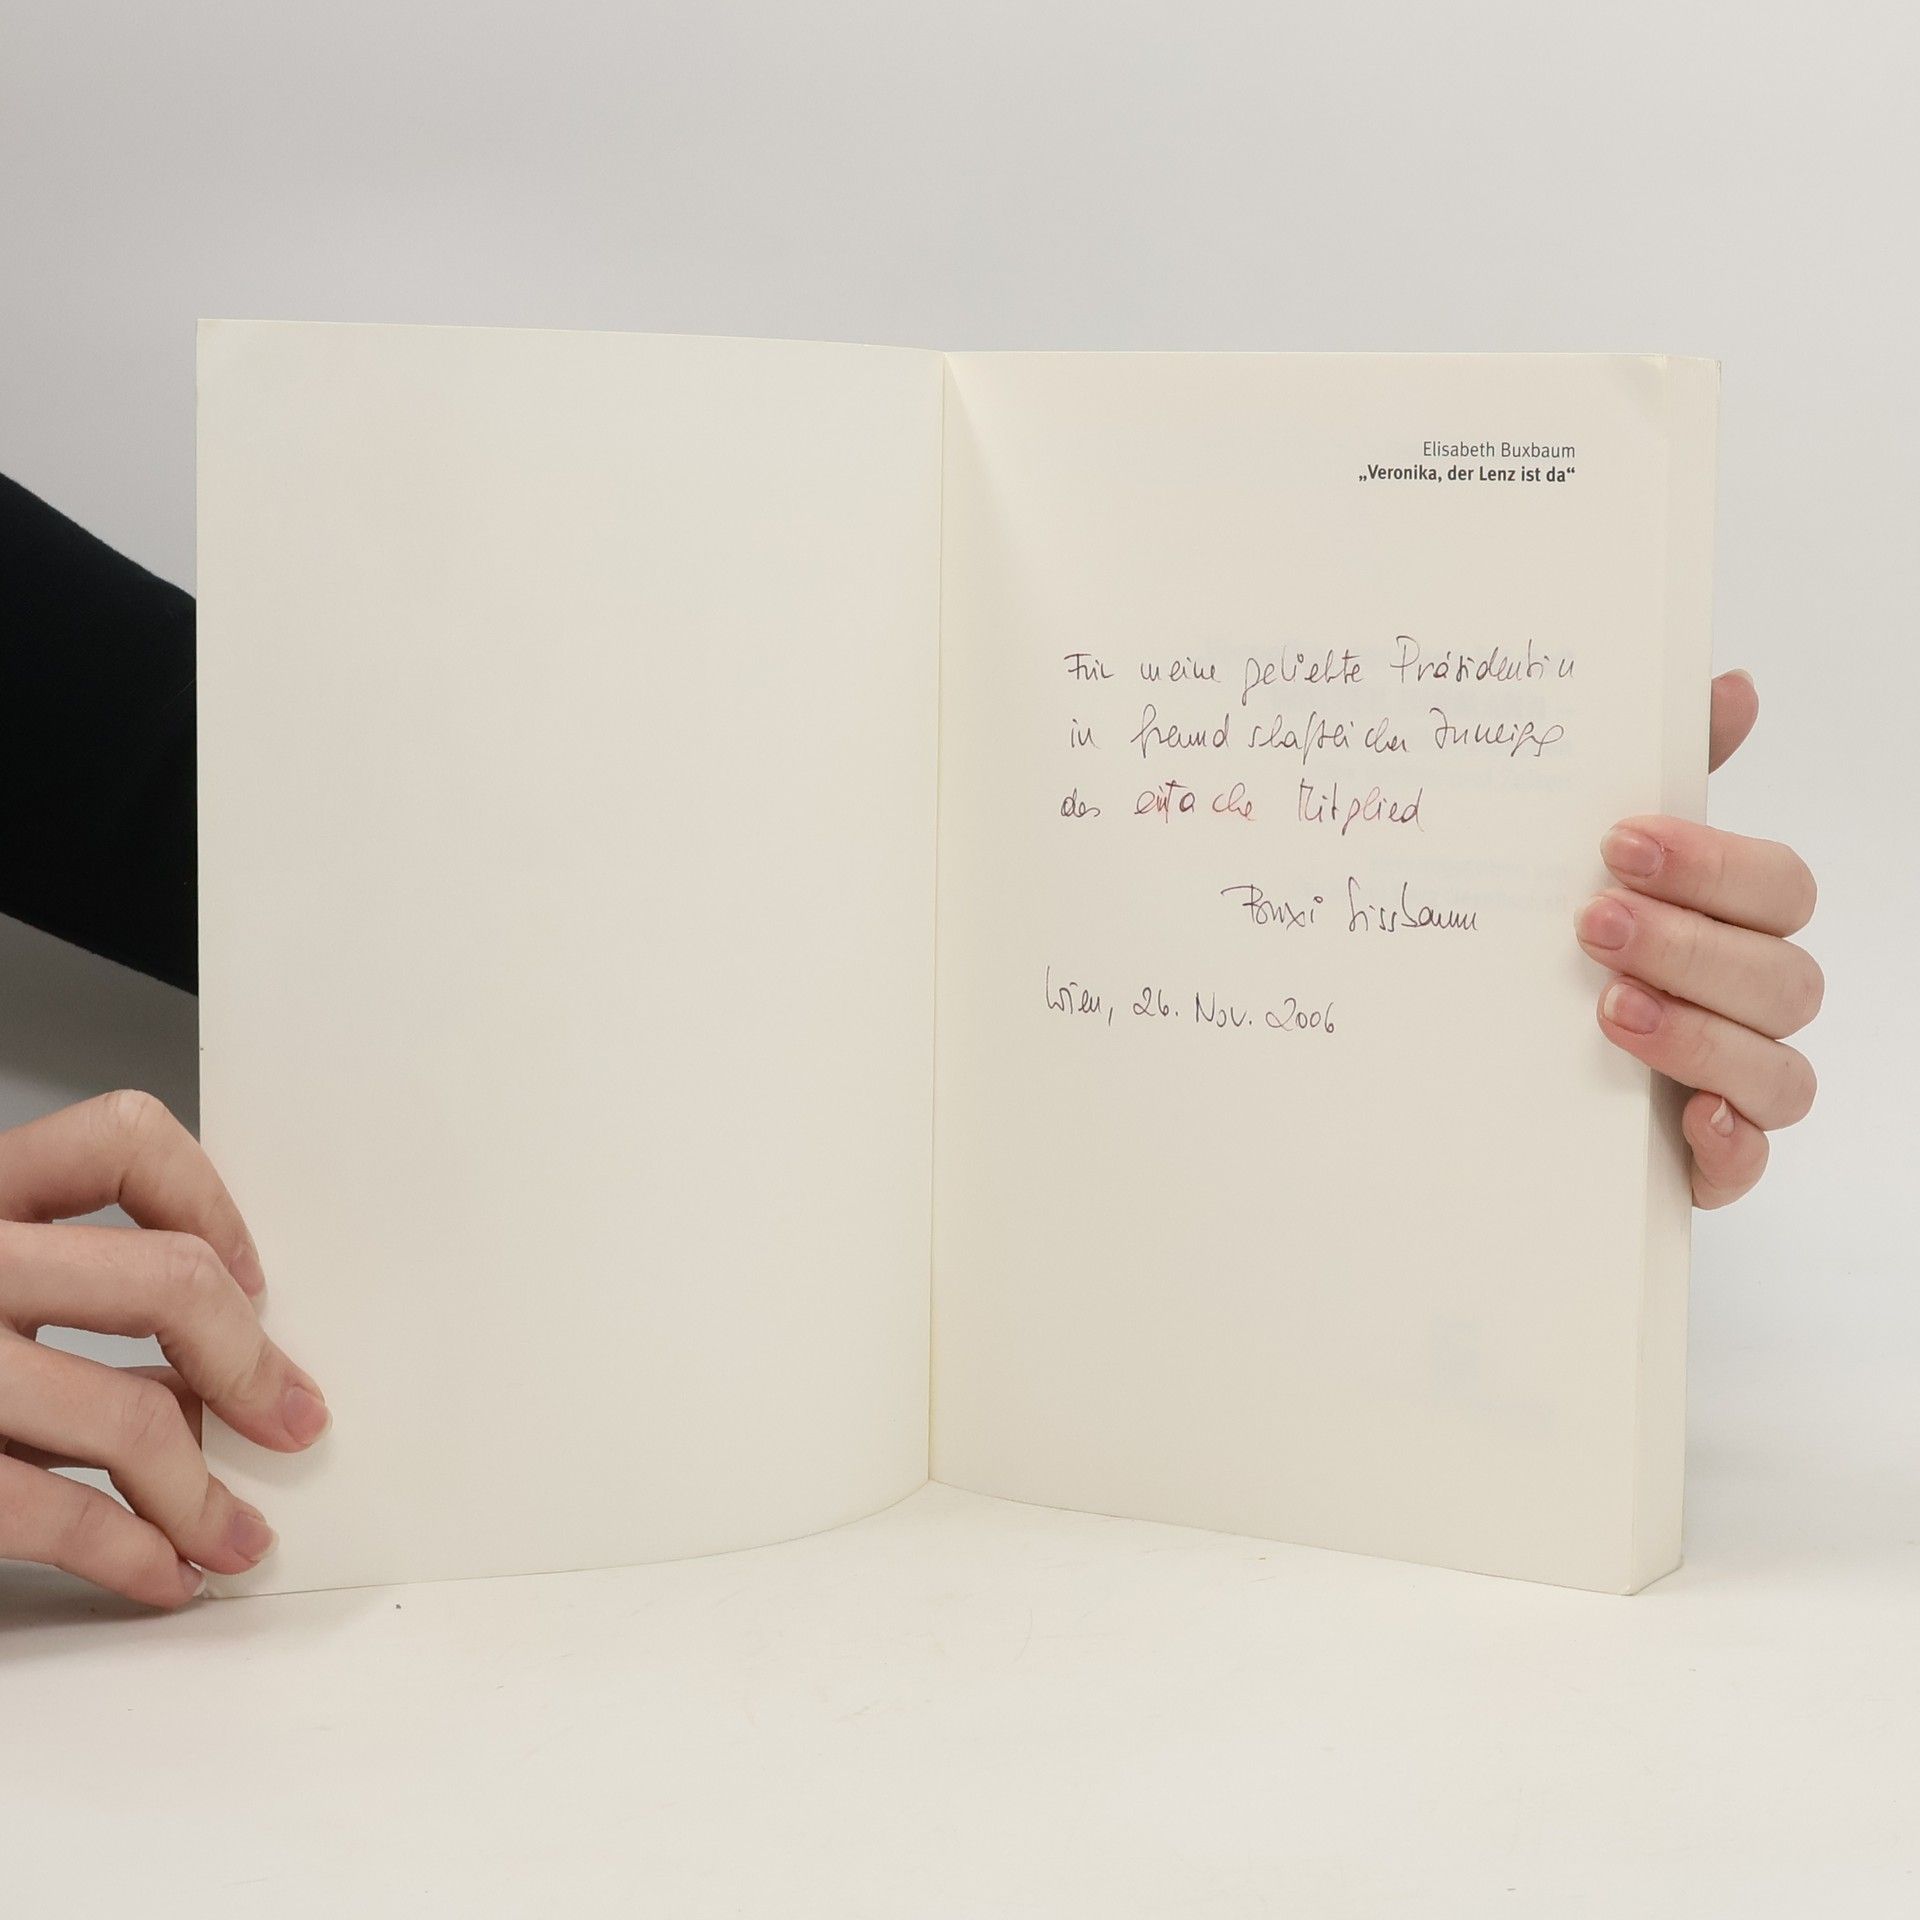 Elisabeth Buxbaum
„Veronika, der Lenz ist da“
Für meine geliebte Präsidentin
in freundschaftlicher Zuneigg
das einfache Mitglied
Buxi Sissbaum
Wien, 26. Nov. 2006